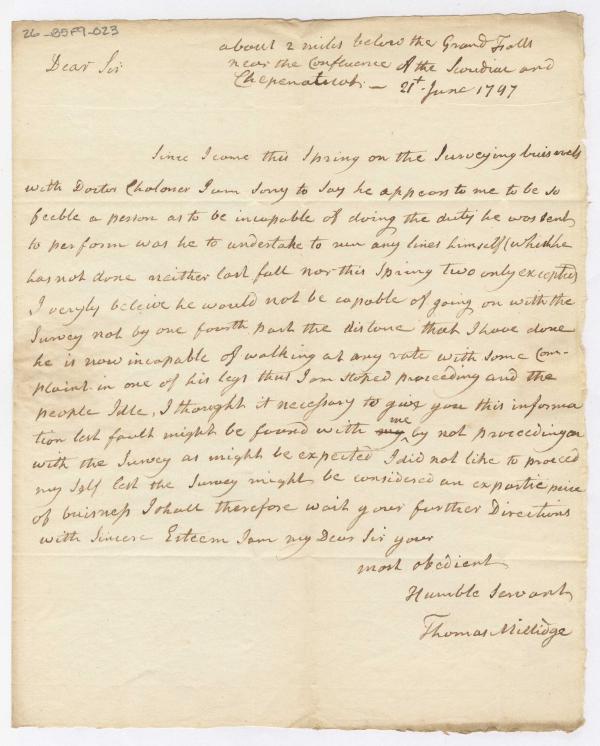 26-B5F9-023
about 2 miles below the Grand Falls
Dear Sir
near the Confluence of the Scudiac and
Chepenatecook — 21st June 1797
Since I come this Spring on the Surveying buisness
with Doctor Chaloner I am Sorry to Say he appears to me to be so
feeble a person as to be incapable of doing the duty he was sent
to perform was he to undertake to run any lines himself (which he
has not done neither last fall nor this Spring two only excepted)
I veryly beleive he would not be capable of going on with the
Survey not by one fourth part the distence that I have done
he is now incapable of walking at any rate with some Com-
plaint in one of his legs thus I am stoped proceeding and the
people Idle, I thought it necessary to give you this informa
tion lest fault might be found with my me by not proceeding on
with the Survey as might be expected I did not like to proceed
my Self lest the Survey might be considered an expartie peice
of buisness I shall therefore wait your further Directions
with Sincere Esteem I am my Dear Sir your
most obedient
Humble Servant
Thomas Millidge